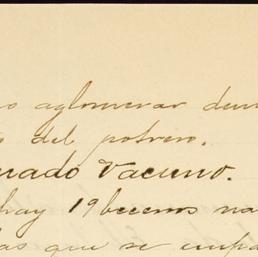 o aglomerar dem
del potrero.
nado Vacuno.
hay 19 buenos na
las que se empa